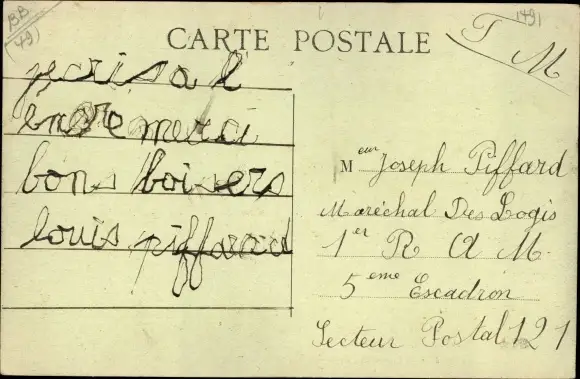 BB
(49)
1491
T M
CARTE POSTALE
jecris a l
encre merci
bons boisers
louis piffard
Meur Joseph Piffard
Maréchal Des Logis
1er R A M.
5eme Escadron
Secteur Postal 121